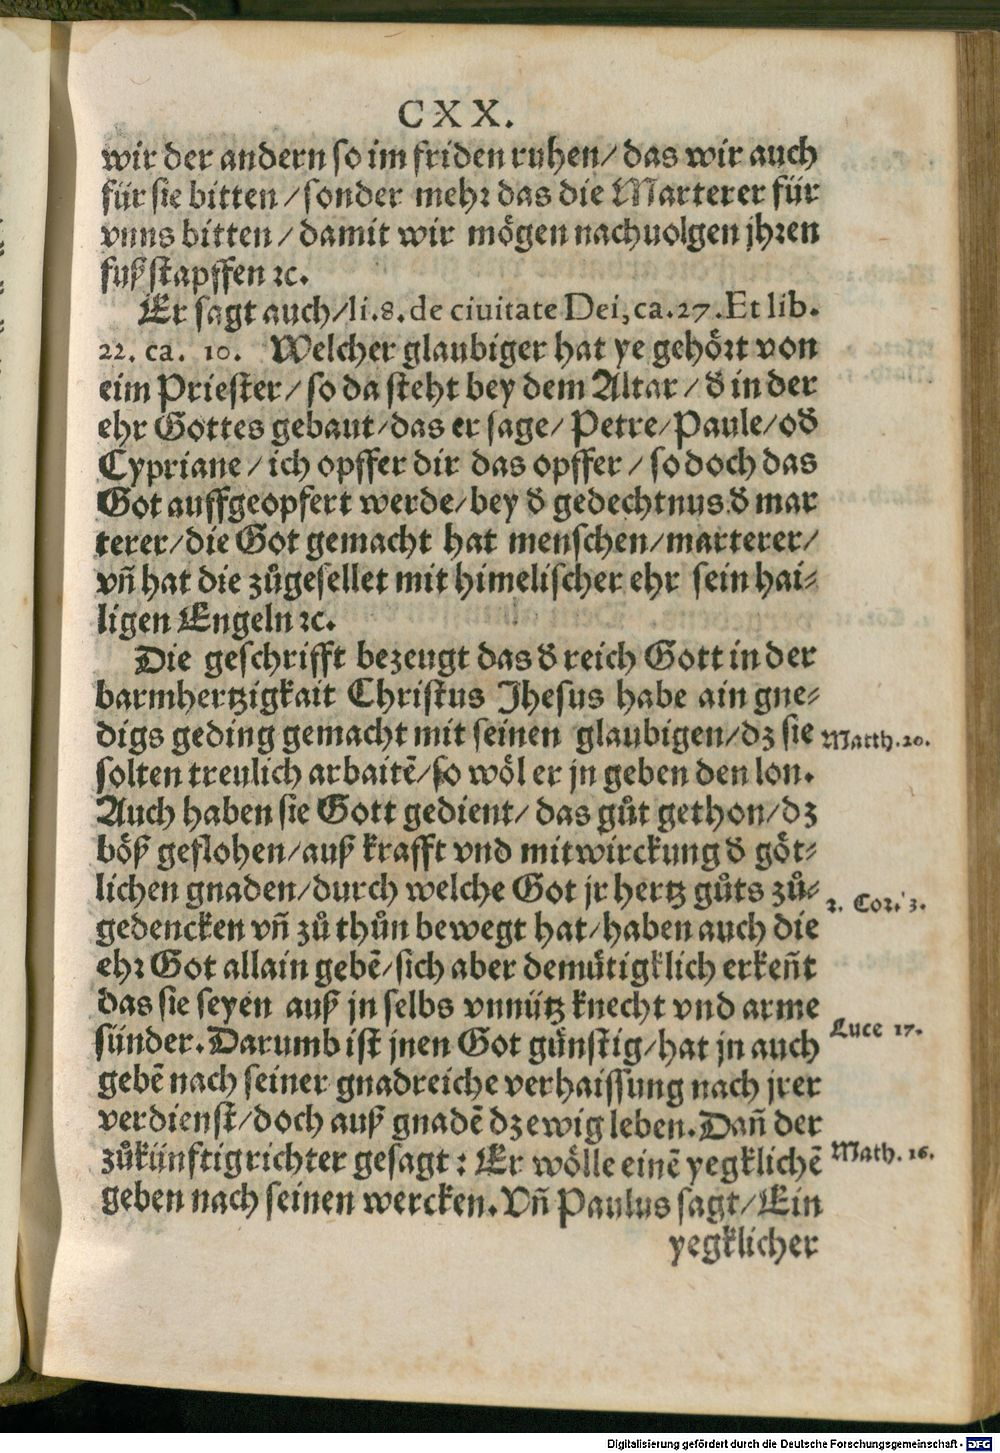 CXX.
wir der andern so im friden ruhen/ das wir auch
für sie bitten / sonder mehꝛ das die Marterer für
vnns bitten / damit wir mögen nachuolgen jhꝛen
fußstapffen ꝛc.
Er sagt auch/li.8.de ciuitate Dei, ca.27.Et lib.
22. ca. 10. Welcher glaubiger hat ye gehöꝛt von
eim Priester/ so da steht bey dem Altar/ d̕ in der
ehr Gottes gebaut/das er sage/ Petre/Paule/od̕
Cypriane / ich opffer dir das opffer / so doch das
Got auffgeopfert werde/bey d̕ gedechtnus d̕ mar
terer/die Got gemacht hat menschen/marterer/
vñ hat die zůgesellet mit himelischer ehr sein hai⸗
ligen Engeln ꝛc.
Die geschrifft bezeugt das d̕ reich Gott in der
barmhertzigkait Christus Jhesus habe ain gne⸗
digs geding gemacht mit seinen glaubigen/dz sie
Matth.20.
solten treulich arbaitē/so wöl er jn geben den lon.
Auch haben sie Gott gedient/ das gůt gethon/dz
böß geflohen/auß krafft vnd mitwirckung d̕ göt⸗
lichen gnaden/durch welche Got jr hertz gůts zů⸗
2. Coꝛ. 3.
gedencken vñ zů thůn bewegt hat/haben auch die
ehꝛ Got allain gebē/sich aber demütigklich erkeñt
das sie seyen auß jn selbs vnnütz knecht vnd arme
Luce 17.
sünder. Darumb ist jnen Got günstig/hat jn auch
gebē nach seiner gnadreiche verhaissung nach jrer
verdienst/doch auß gnadē dz ewig leben. Dañ der
zůkünftig richter gesagt : Er wölle einē yegklichē
Math. 16.
geben nach seinen wercken. Vñ Paulus sagt/ Ein
yegklicher
Digitalisierung gefördert durch die Deutsche Forschungsgemeinschaft - DFG